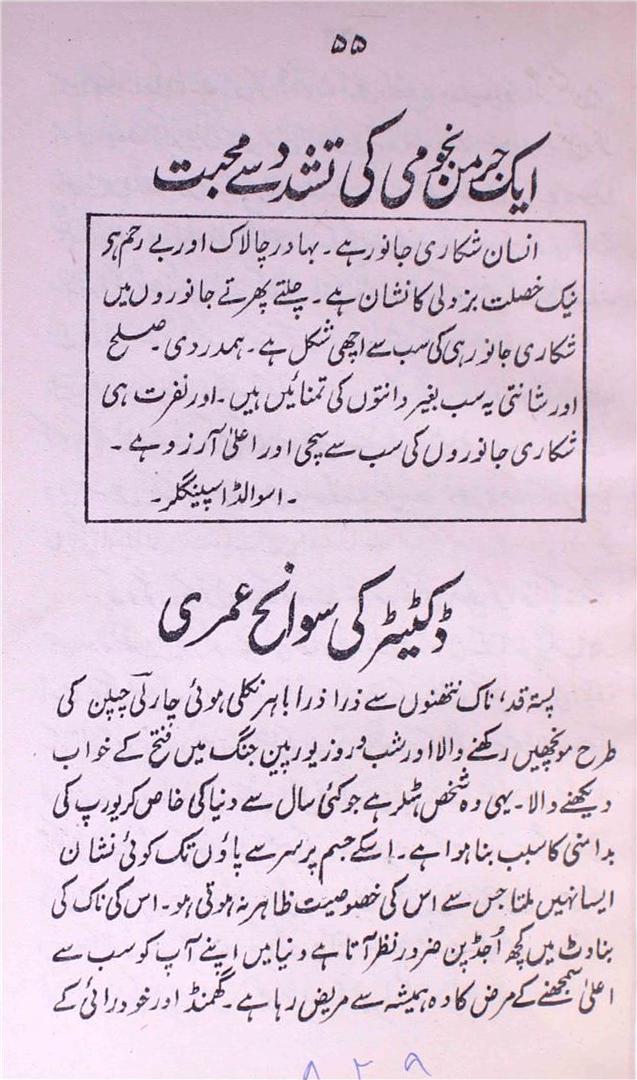 ۵۵
ایک جرمن نجومی کی تشدد سے محبت
انسان شکاری جانور ہے۔ بہادر چالاک اور بے رحم ہو
نیک خصلت بزدلی کا نشان ہے۔ چلتے پھرتے جانوروں میں
شکاری جانور ہی کی سب سے اچھی شکل ہے۔ ہمدردی۔ صلح
اور شانتی یہ سب بغیر دانتوں کی تمنائیں ہیں۔ اور نفرت ہی
شکاری جانوروں کی سب سے سچی اور اعلیٰ آرزو ہے ۔
۔ اسوالڈ اسپینگلر۔
ڈکٹیٹر کی سوانح عمری
پستہ قد، ناک نتھنوں سے ذرا ذرا باہر نکلی ہوئی چارلی چپلن کی
طرح مونچھیں رکھنے والا اور شب و روز یورپین جنگ میں فتح کے خواب
دیکھنے والا۔ یہی وہ شخص ہٹلر ہے جو کئی سال سے دنیا کی خاص کر یورپ کی
بدامنی کا سبب بنا ہوا ہے۔ اسکے جسم پر سر سے پاؤں تک کوئی نشان
ایسا نہیں ملتا جس سے اس کی خصوصیت ظاہر نہ ہوتی ہو۔ اس کی ناک کی
بناوٹ میں کچھ اُجڈ پن ضرور نظر آتا ہے دنیا میں اپنے آپ کو سب سے
اعلیٰ سمجھنے کے مرض کا وہ ہمیشہ سے مریض رہا ہے۔ گھمنڈ اور خود رائی کے
۸۲۹